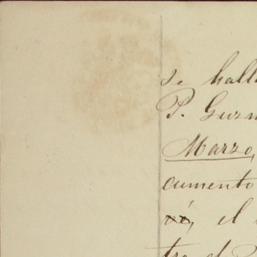 se hall
P. Guzm
Marzo,
cumento
el
tre el